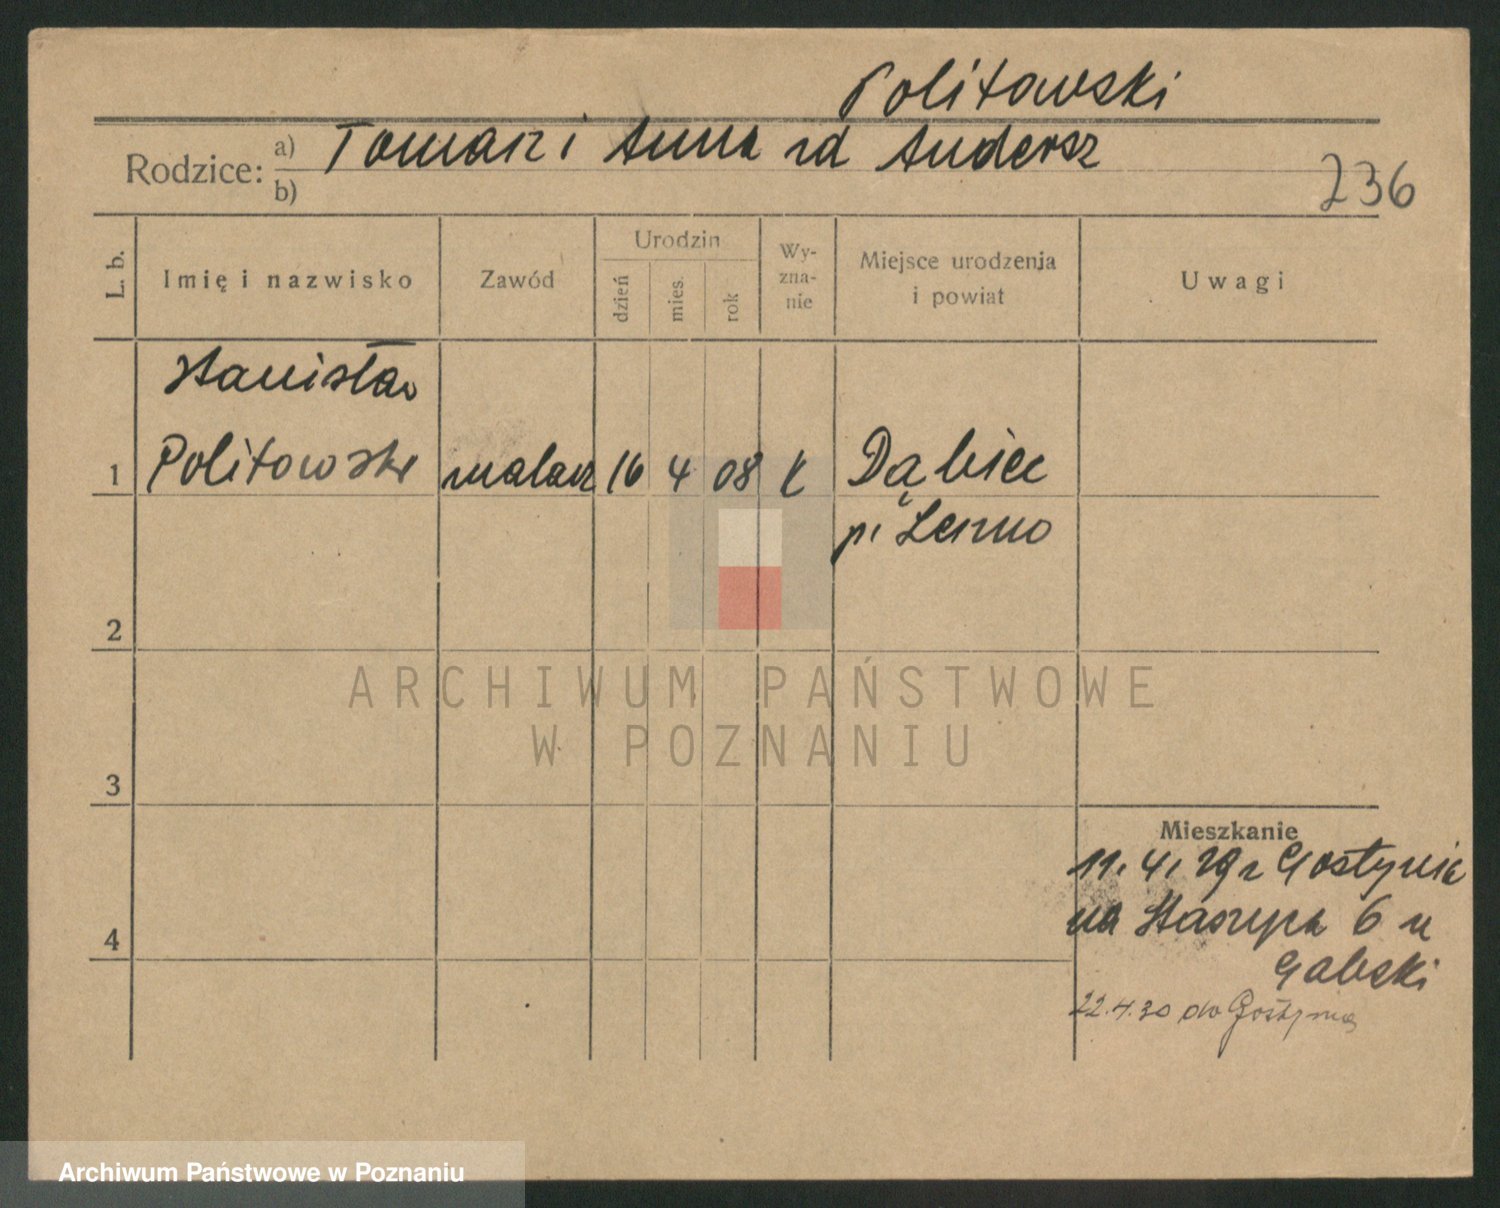 Politowski
Rodzice: a) Tomasz i Anna zd Andersz
b)
236
L. b.
Imię i nazwisko
Zawód
Urodzin
dzień
mies.
rok
Wy-
zna-
nie
Miejsce urodzenia
i powiat
Uwagi
Stanisław
1 Politowski malarz 16 4 08 K Dąbiec
p. Leszno
2
3
4
Mieszkanie
11. 4. 29 z Gostynia
na Staszyca 6 u
Gabski
22.4.30 do Gostynia
ARCHIWUM PAŃSTWOWE
W POZNANIU
Archiwum Państwowe w Poznaniu